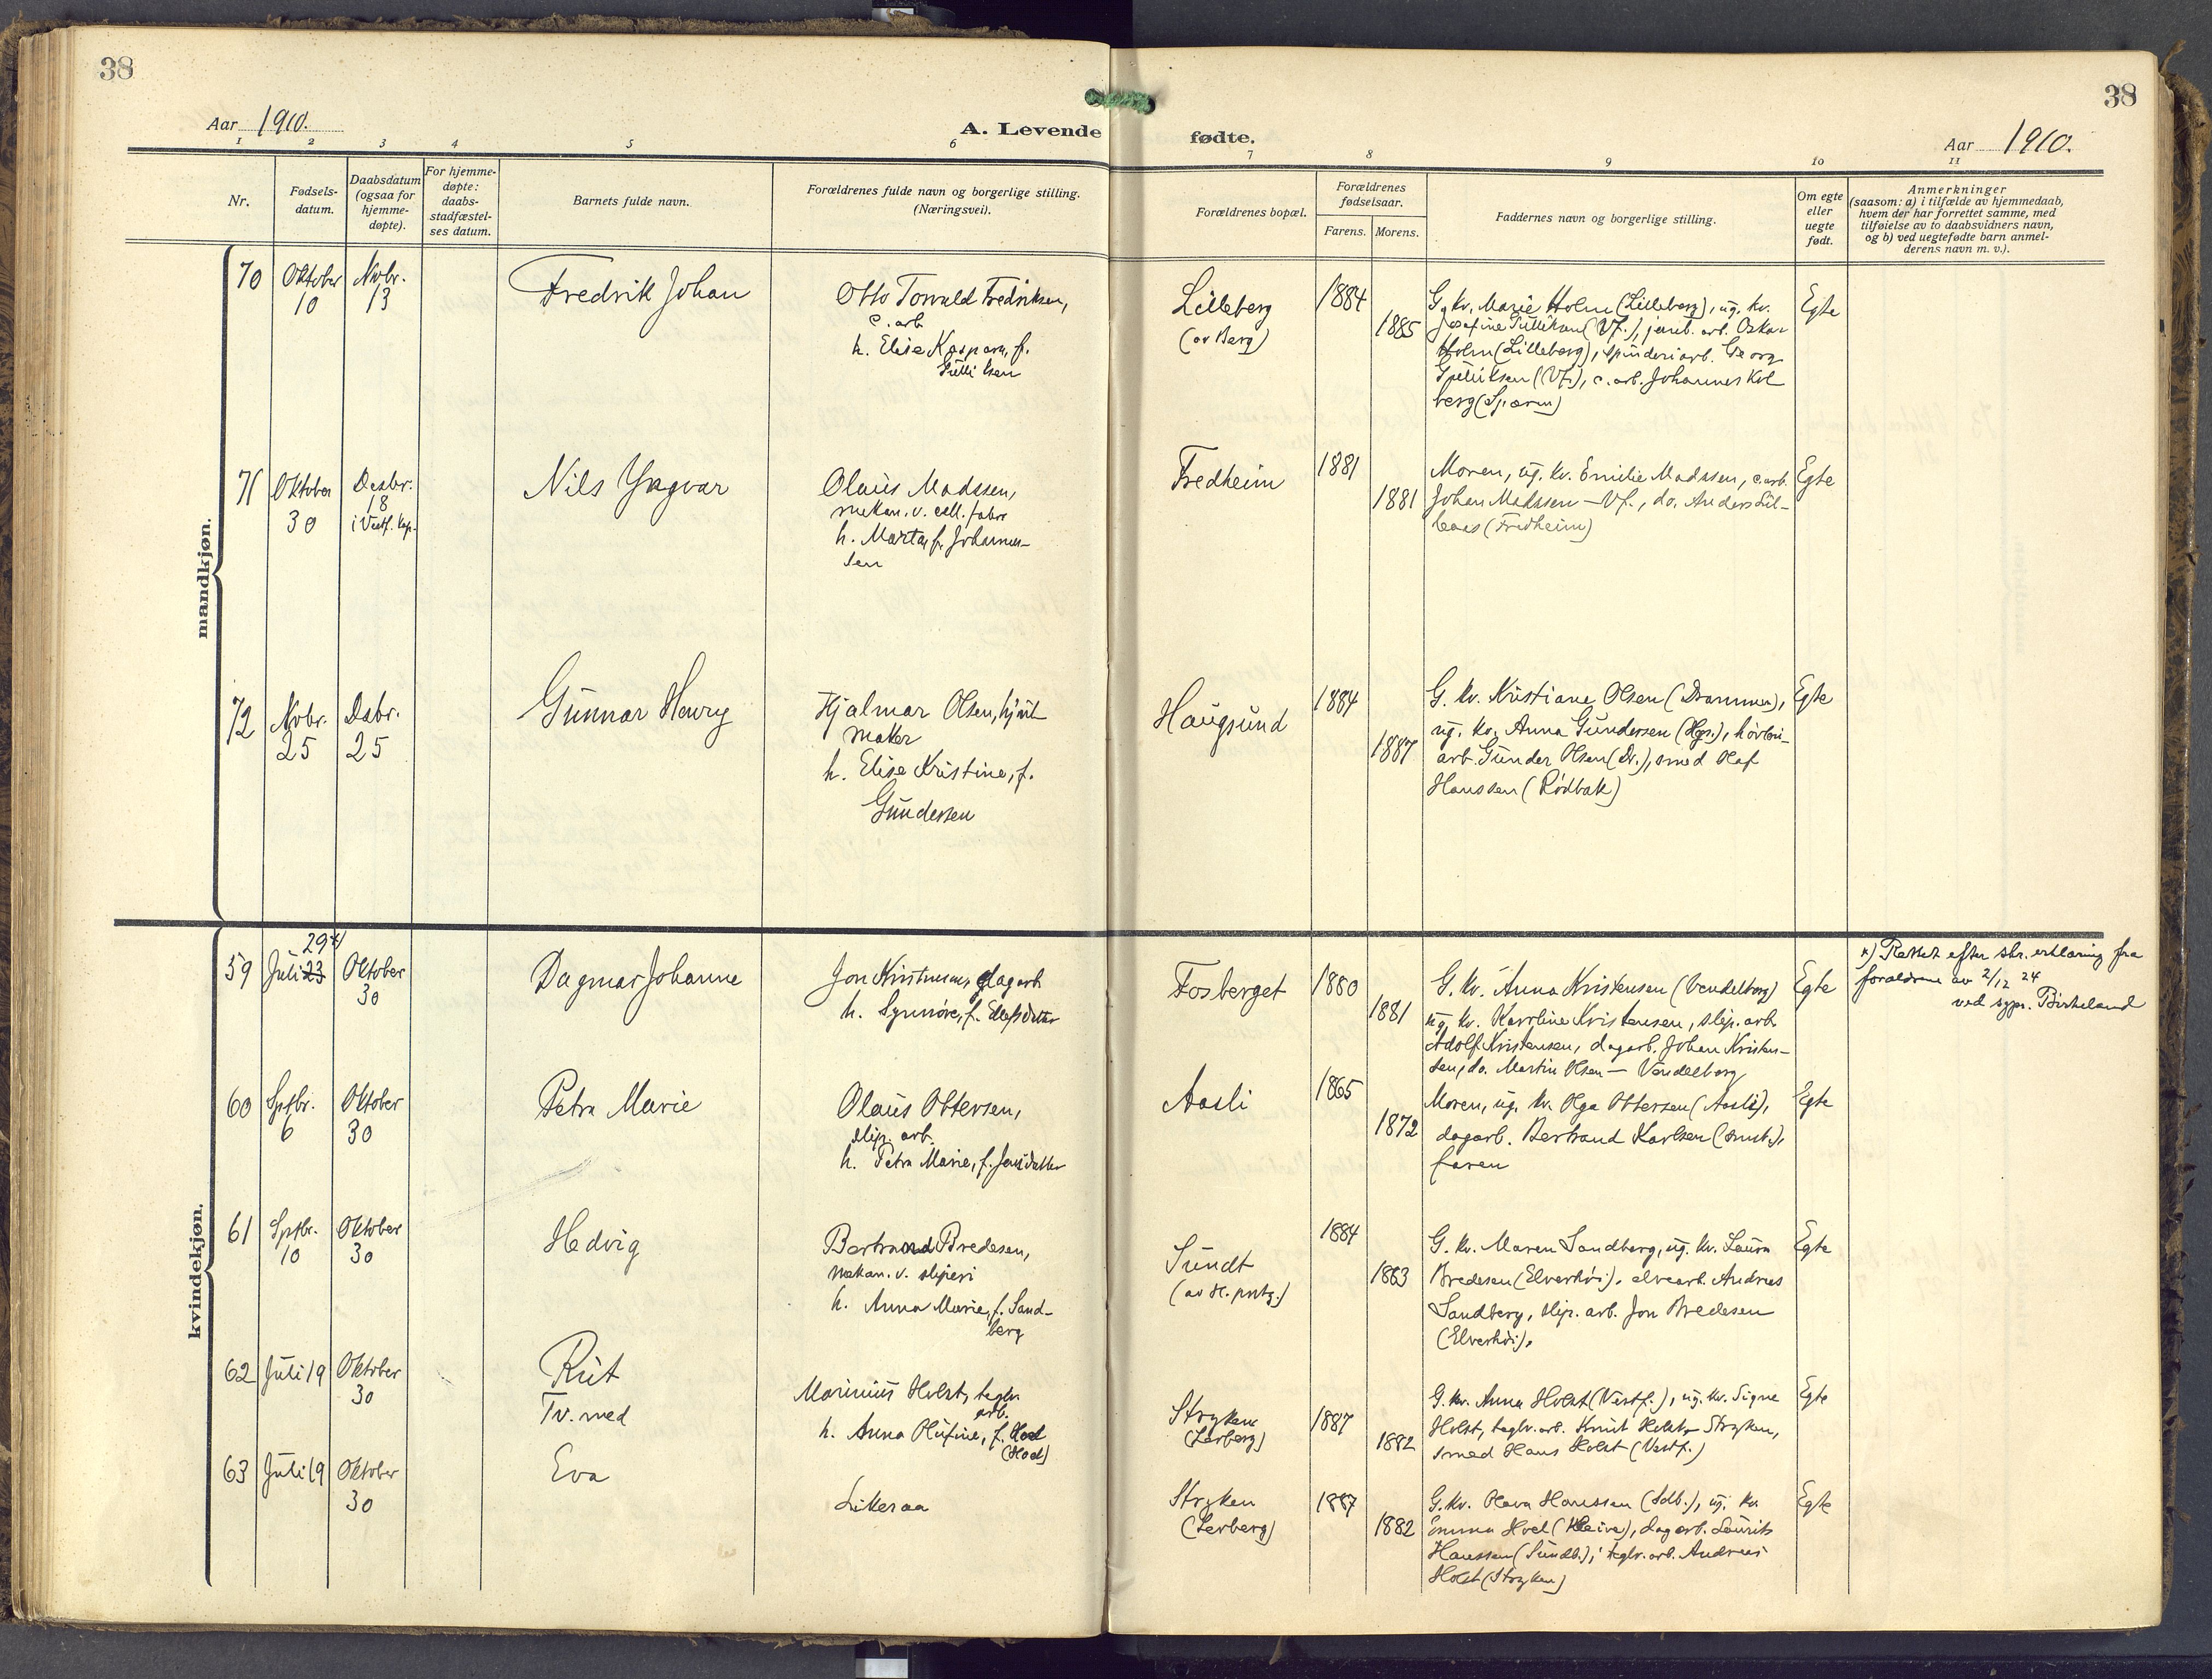 38
38
Aar 1910.
A. Levende
fødte.
Aar 1910.
1 2 3 4 5 6
7 8 9 10 11
Nr.
Fødsels-
datum.
Daabsdatum
(ogsaa for
hjemme-
døpte).
For hjemme-
døpte:
daabs-
stadfæstel-
ses datum.
Barnets fulde navn.
Forældrenes fulde navn og borgerlige stilling.
(Næringsvei).
Forældrenes bopæl.
Forældrenes
fødselsaar.
Farens. Morens.
Faddernes navn og borgerlige stilling.
Om egte
eller
uegte
født.
Anmerkninger
(saasom: a) i tilfælde av hjemmedaab,
hvem der har forrettet samme, med
tilføielse av to daabsvidners navn,
og b) ved uegtefødte barn anmel-
derens navn m. v.).
mandkjøn.
70
Oktober
10
Novbr.
13
Fredrik Johan
Otto Torvald Fredriksen,
c. arb.
h. Elise Kasparа, f.
Lilleberg
(av Berg)
1884
1885
G. kv. Marie Holm (Lilleberg), ug. kv.
Josefine (Vf.), jernb. arb. Oskar
Holm (Lilleberg), spinderiarb. Georg
(Vf.), c. arb. Johannes Kol
berg (Spærn)
Egte
71
Oktober
30
Desbr.
18
i Vestf. kap.
Nils Yngvar
Olaus Madssen,
mekan. v. cell. fabr
h. Marta, f. Johannes-
sen
Fredheim
1881
1881
Moren, ug. kv. Emilie Madssen, c. arb.
Johan Madssen — Vf., do. Anders Lil-
leaas (Fredheim)
Egte
72
Novbr.
25
Dsbr.
25
Gunnar Henry
Hjalmar Olsen, hjul-
maker
h. Elise Kristine, f.
Gundersen
Haugsund
1884
1887
G. kv. Kristiane Olsen (Drammen),
ug. kv. Anna Gundersen (Hgs.), høvleri-
arb. Gunder Olsen (Dr.), smed Olaf
Hanssen (Rødbak)
Egte
kvindekjøn.
59
29 x)
Juli 23
Oktober
30
Dagmar Johanne
Jon Kristensen, dagarb
h. Synnøve, f. Ellefsdatter
Fosberget
1880
1881
G. kv. Anna Kristensen (Vendelborg)
ug. kv. Karoline Kristensen, slip. arb.
Adolf Kristensen, dagarb. Johan Kristen-
sen, do. Martin Olsen — Vendelborg
Egte
x) Rettet efter skr. erklæring fra
forældrene av 2/12 24
ved sgpr. Birkeland
60
Sptbr.
6
Oktober
30
Petra Marie
Olaus Ottersen,
slip. arb.
h. Petra Marie, f. Jensdatter
Aasli
1865
1872
Moren, ug. kv. Olga Ottersen (Aasli),
dagarb. Bertrand Karlsen (smst.),
faren
Egte
61
Sptbr.
10
Oktober
30
Hedvig
Bertrand Bredesen,
mekan. v. sliperi
h. Anna Marie, f. Sand-
berg
Sundt
(av H. prstg.)
1884
1883
G. kv. Maren Sandberg, ug. kv. Laura
Bredesen (Elverhøi), elvearb. Andreas
Sandberg, slip. arb. Jon Bredesen
(Elverhøi).
Egte
62
Juli 19
Oktober
30
Rut
Tv. med
Marinius Holst, teglv.
arb.
h. Anna Olufine, f. Hoel
(Hoel)
Stryken
(Lerberg)
1887
1882
G. kv. Anna Holst (Vestf.), ug. kv. Signe
Holst, teglv. arb. Knut Holst, Stryken,
smed Hans Holst (Vestf.)
Egte
63
Juli 19
Oktober
30
Eva
Likesaa
Stryken
(Lerberg)
1887
1882
G. kv. Olava Hanssen (Sdb.), ug. kv.
Emma Hoel (Kleiva), dagarb. Laurits
Hanssen (Sundb.), teglv. arb. Andreas
Holst (Stryken)
Egte